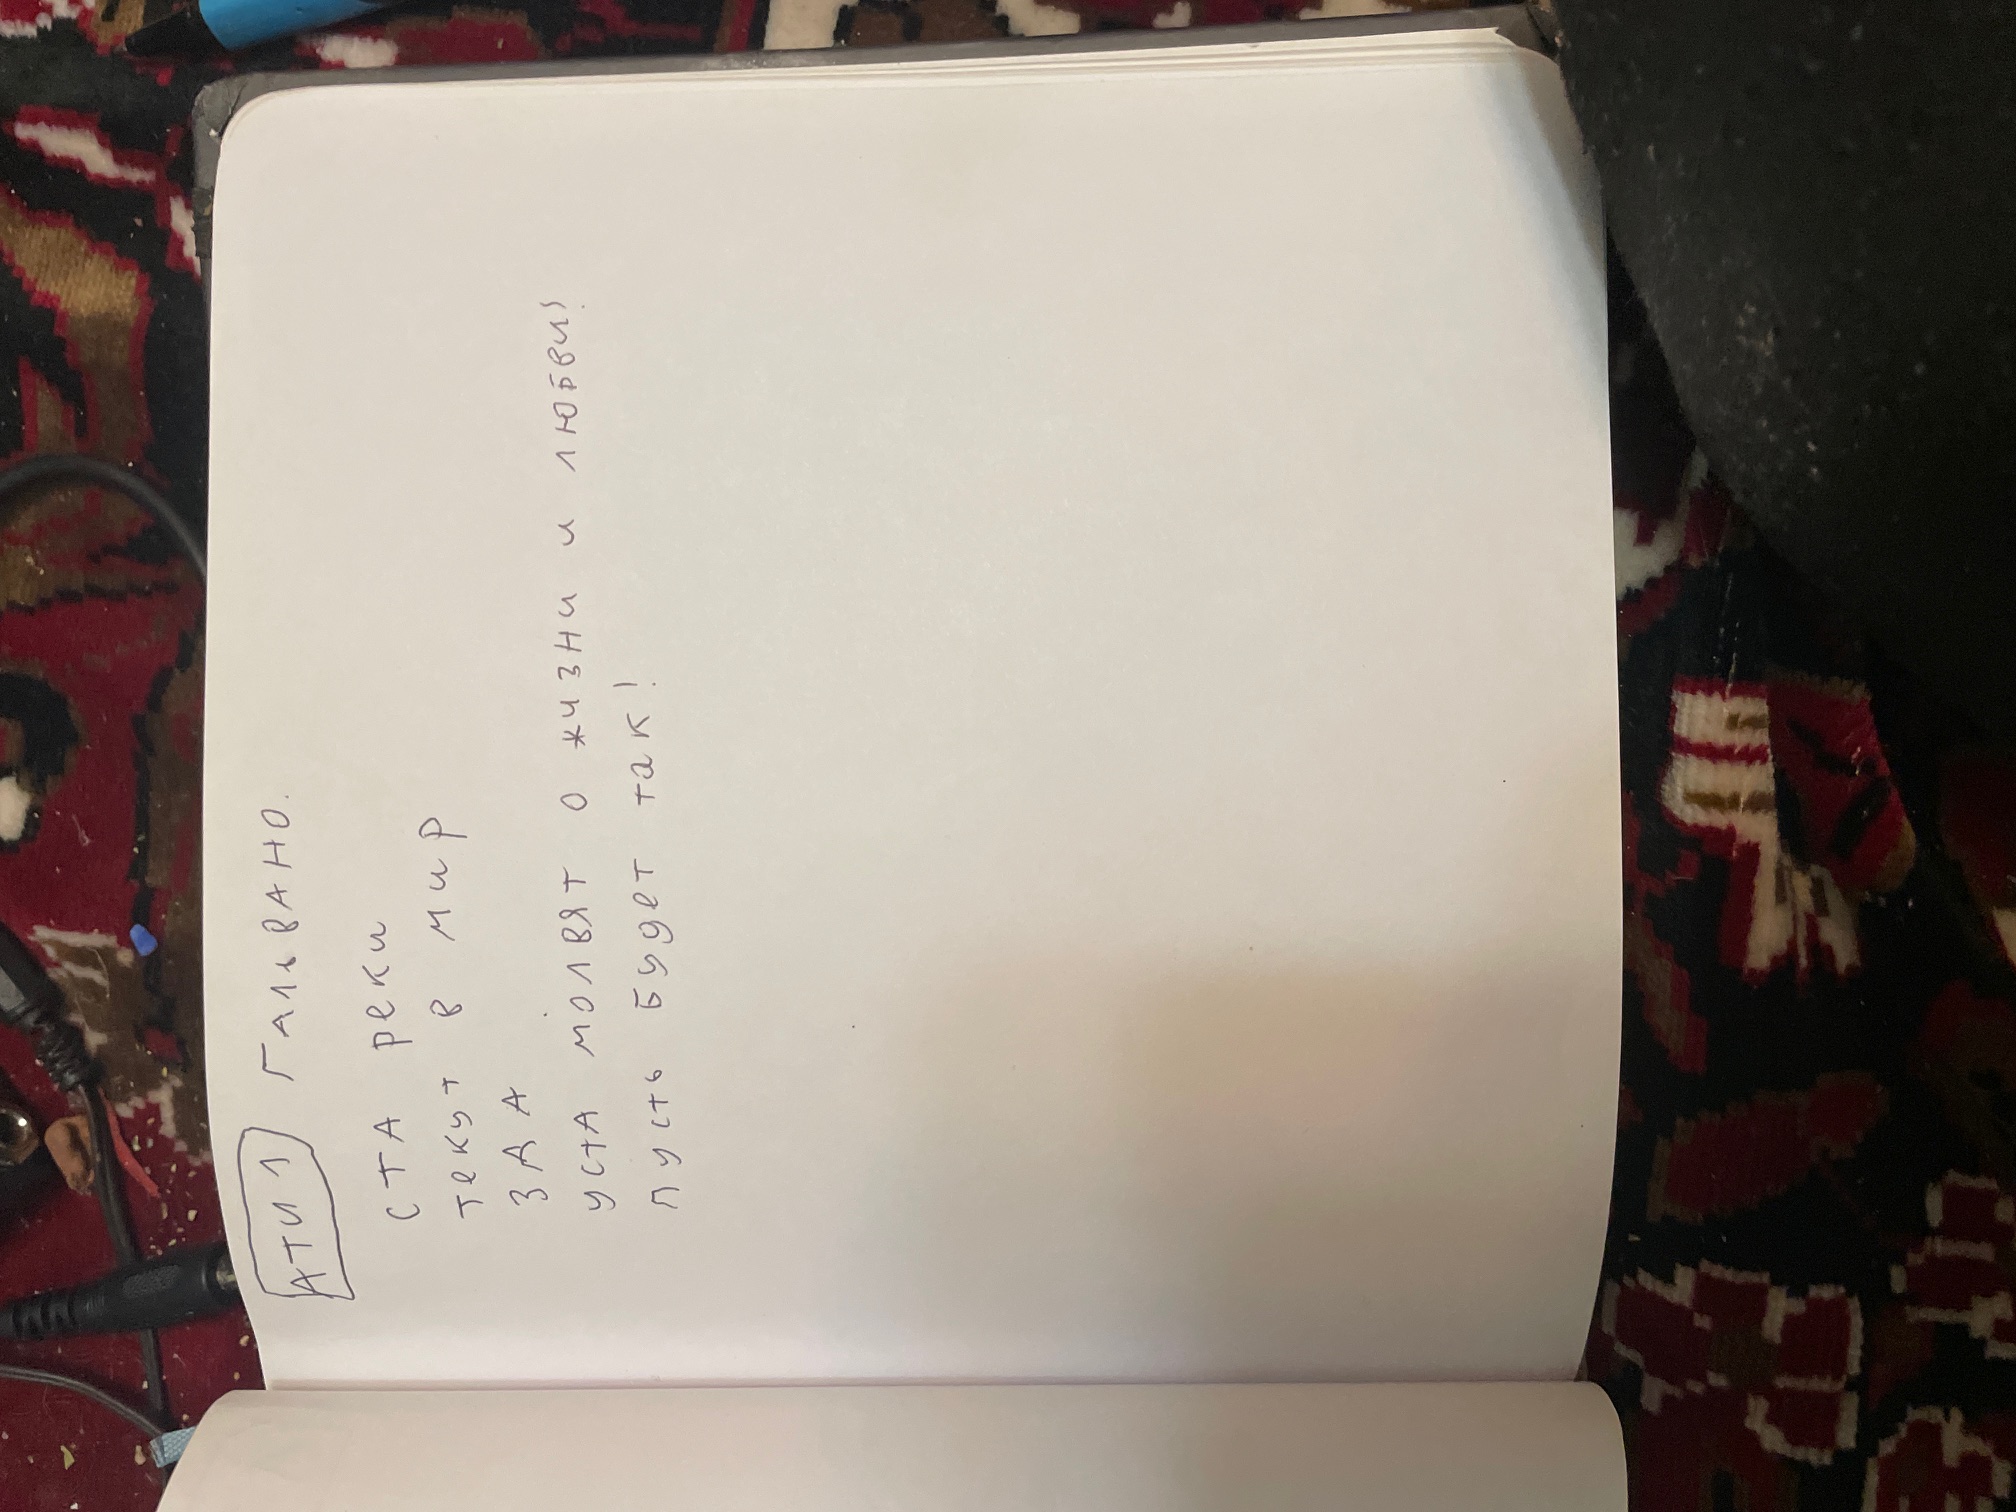 АТИ 1 ГАЛЬВАНО.
СТА реки
текут в мир
ЗДА
уста молвят о жизни и любви!
пусть будет так!